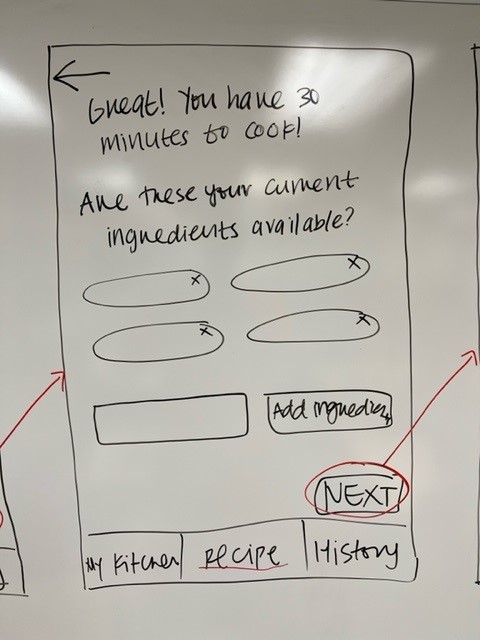 Great! You have 30
minutes to cook!
Are these your current
ingredients available?
x
x
x
x
Add ingredient
NEXT
My Kitchen
recipe
History